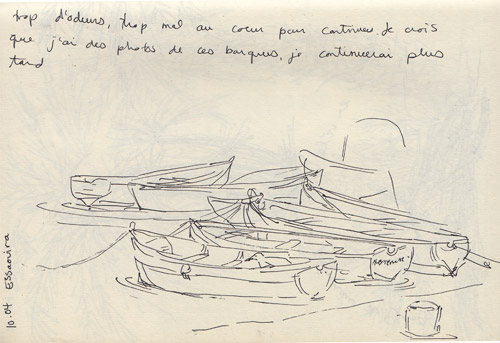 trop d'odeurs, trop mal au coeur pour continuer. Je crois
que j'ai des photos de ces barques, je continuerai plus
tard
10.04 Essaouira